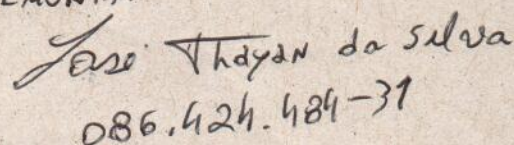 José Thayan da Silva
086.424.484-31